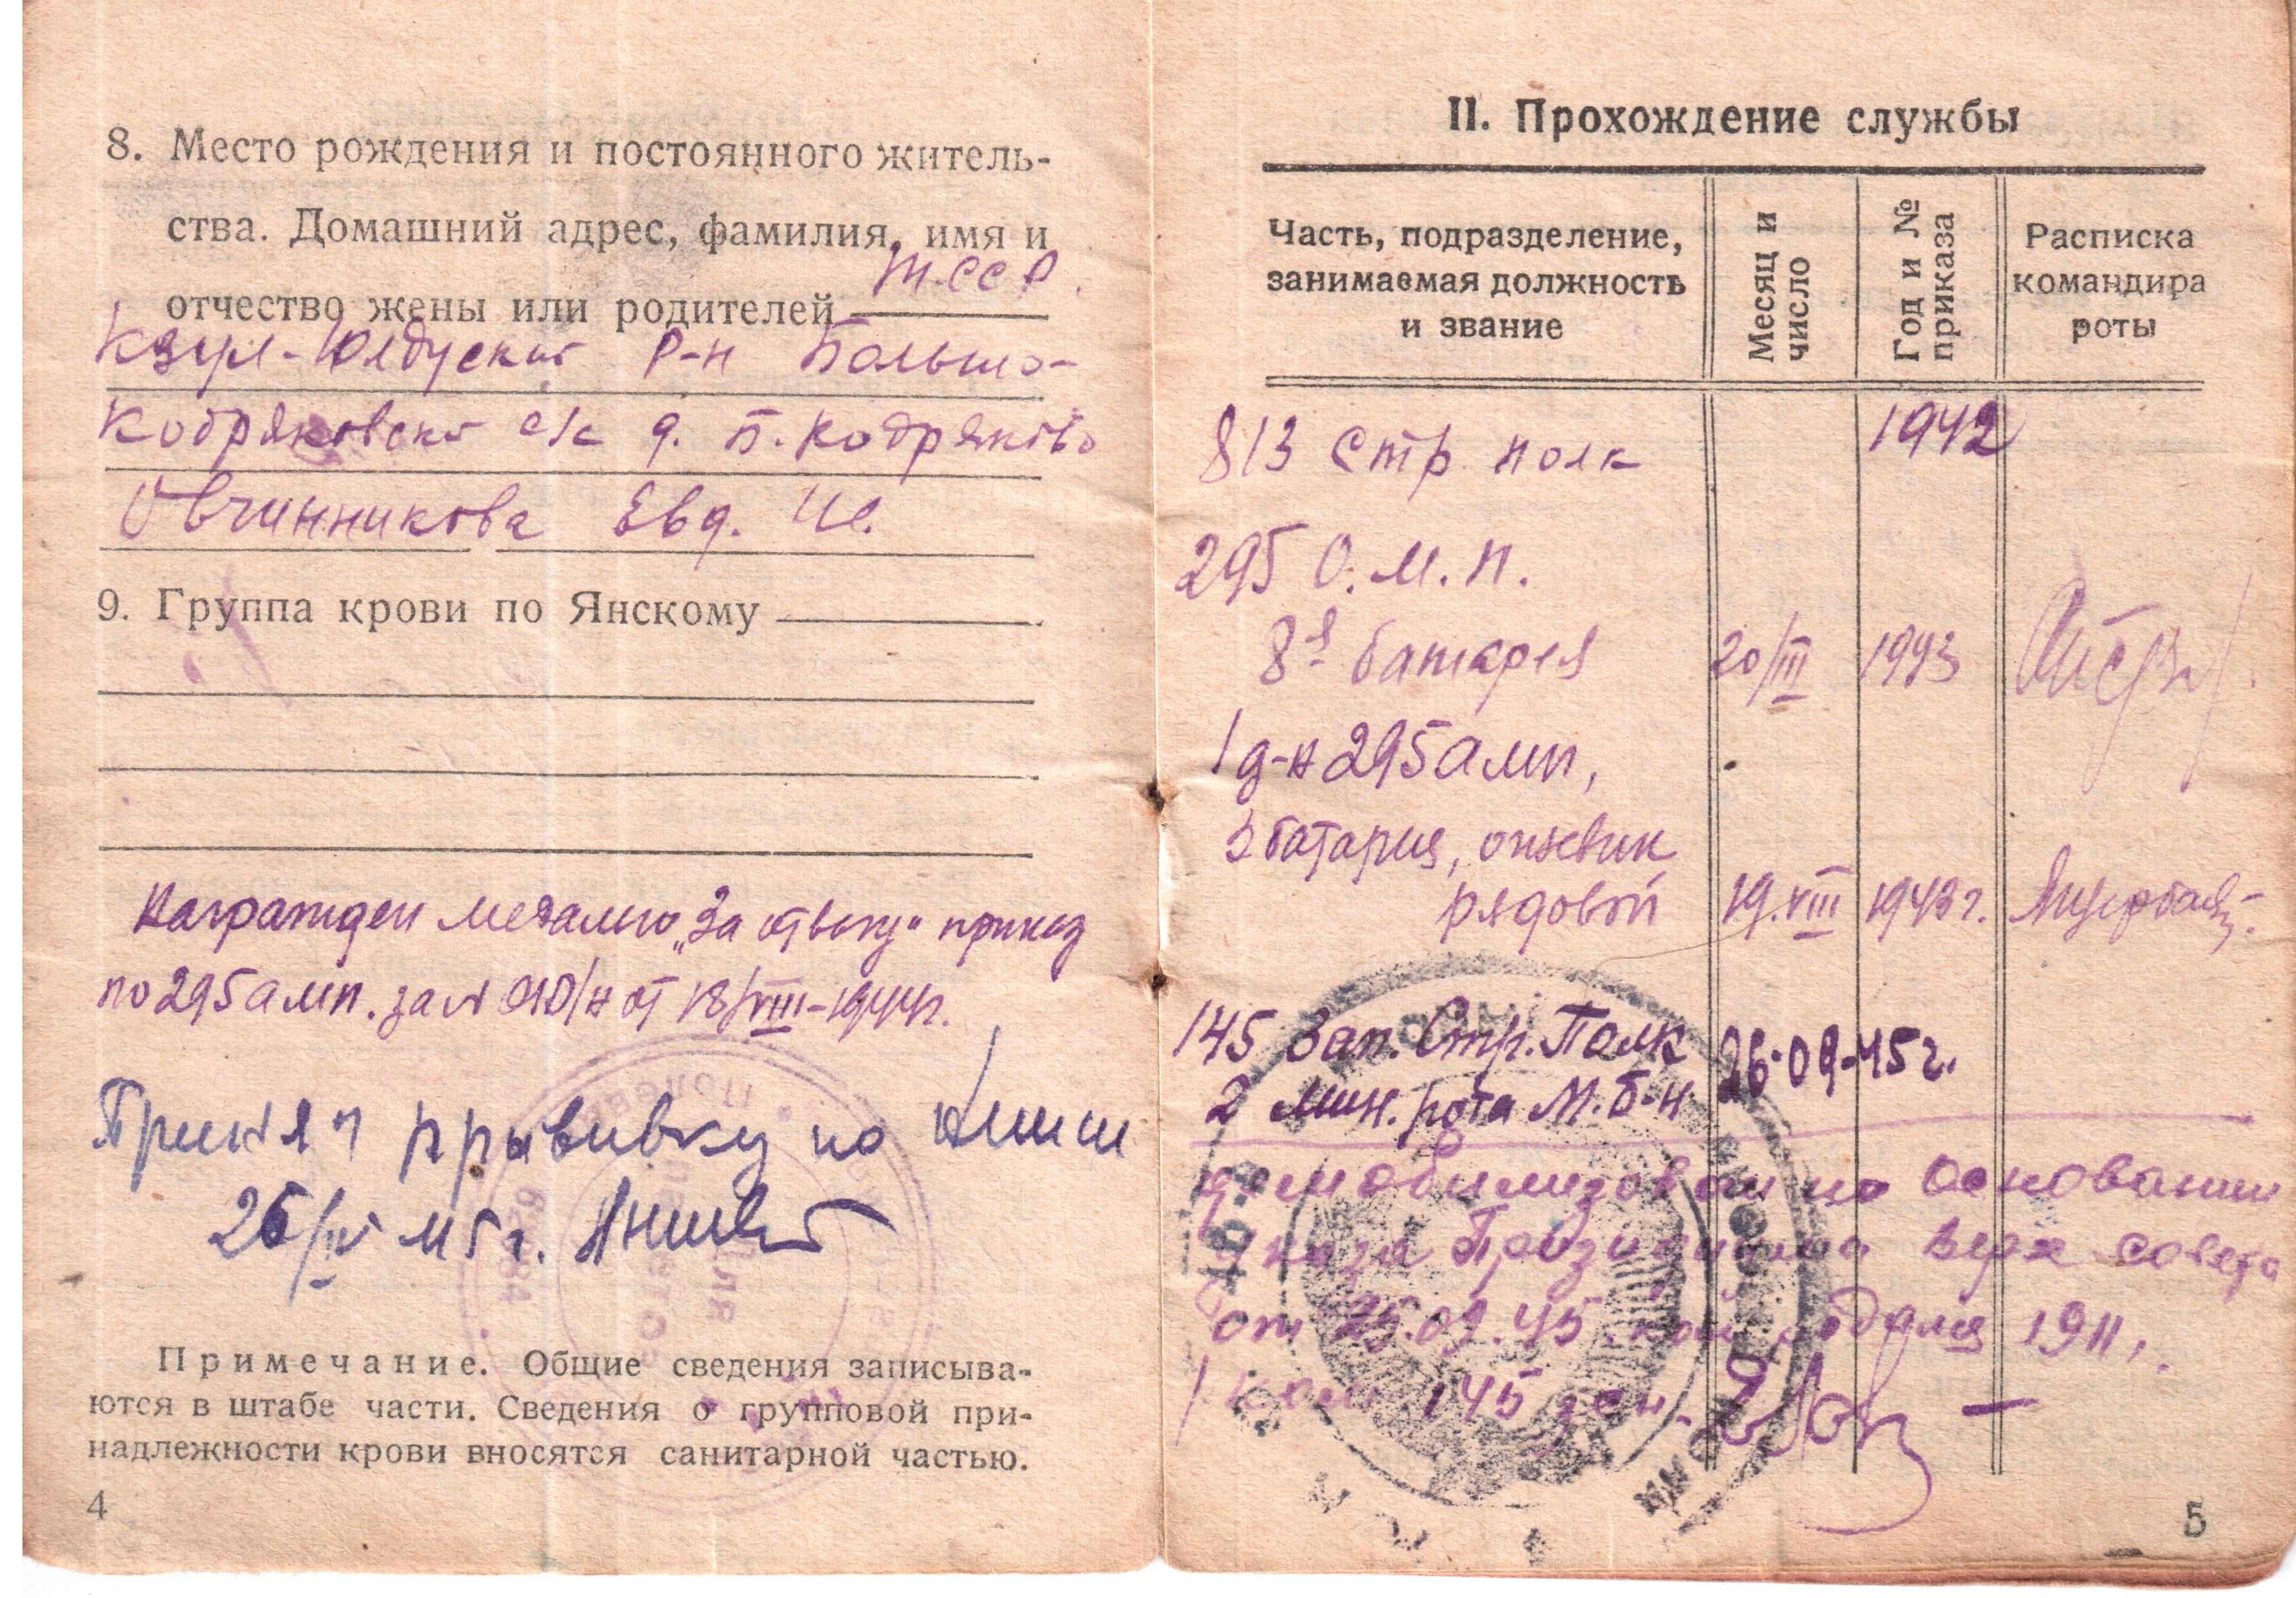 8. Место рождения и постоянного житель-
ства. Домашний адрес, фамилия, имя и
отчество жены или родителей Т.ССР.
Кзыл-Юлдуский р-н Больше-
Кобряковский с/с д. Б. Кодряково
Овчинникова Евд.
9. Группа крови по Янскому
Награжден медалью „За отвагу“ приказ
по 295 амп. за № 010/н от 18/VIII-1944г.
Принял прывивку по
26/IV 45г.
Примечание. Общие сведения записыва-
ются в штабе части. Сведения о групповой при-
надлежности крови вносятся санитарной частью.
4
II. Прохождение службы
Часть, подразделение,
занимаемая должность
и звание
Месяц и
число
Год и №
приказа
Расписка
командира
роты
813 Стр. полк 1942
295 О.М.П.
8я батарея 20/III 1943
1 д-н 295 амп,
3 батария, огневик
рядовой 19.VIII 1943г.
145 Зап. Стр. Полк
2 мин. рота М. б-н. 26.09.45г.
демобилизован на основании
указа Президиума Верх совета
от 25.09.45 1911г.
145 зсп.